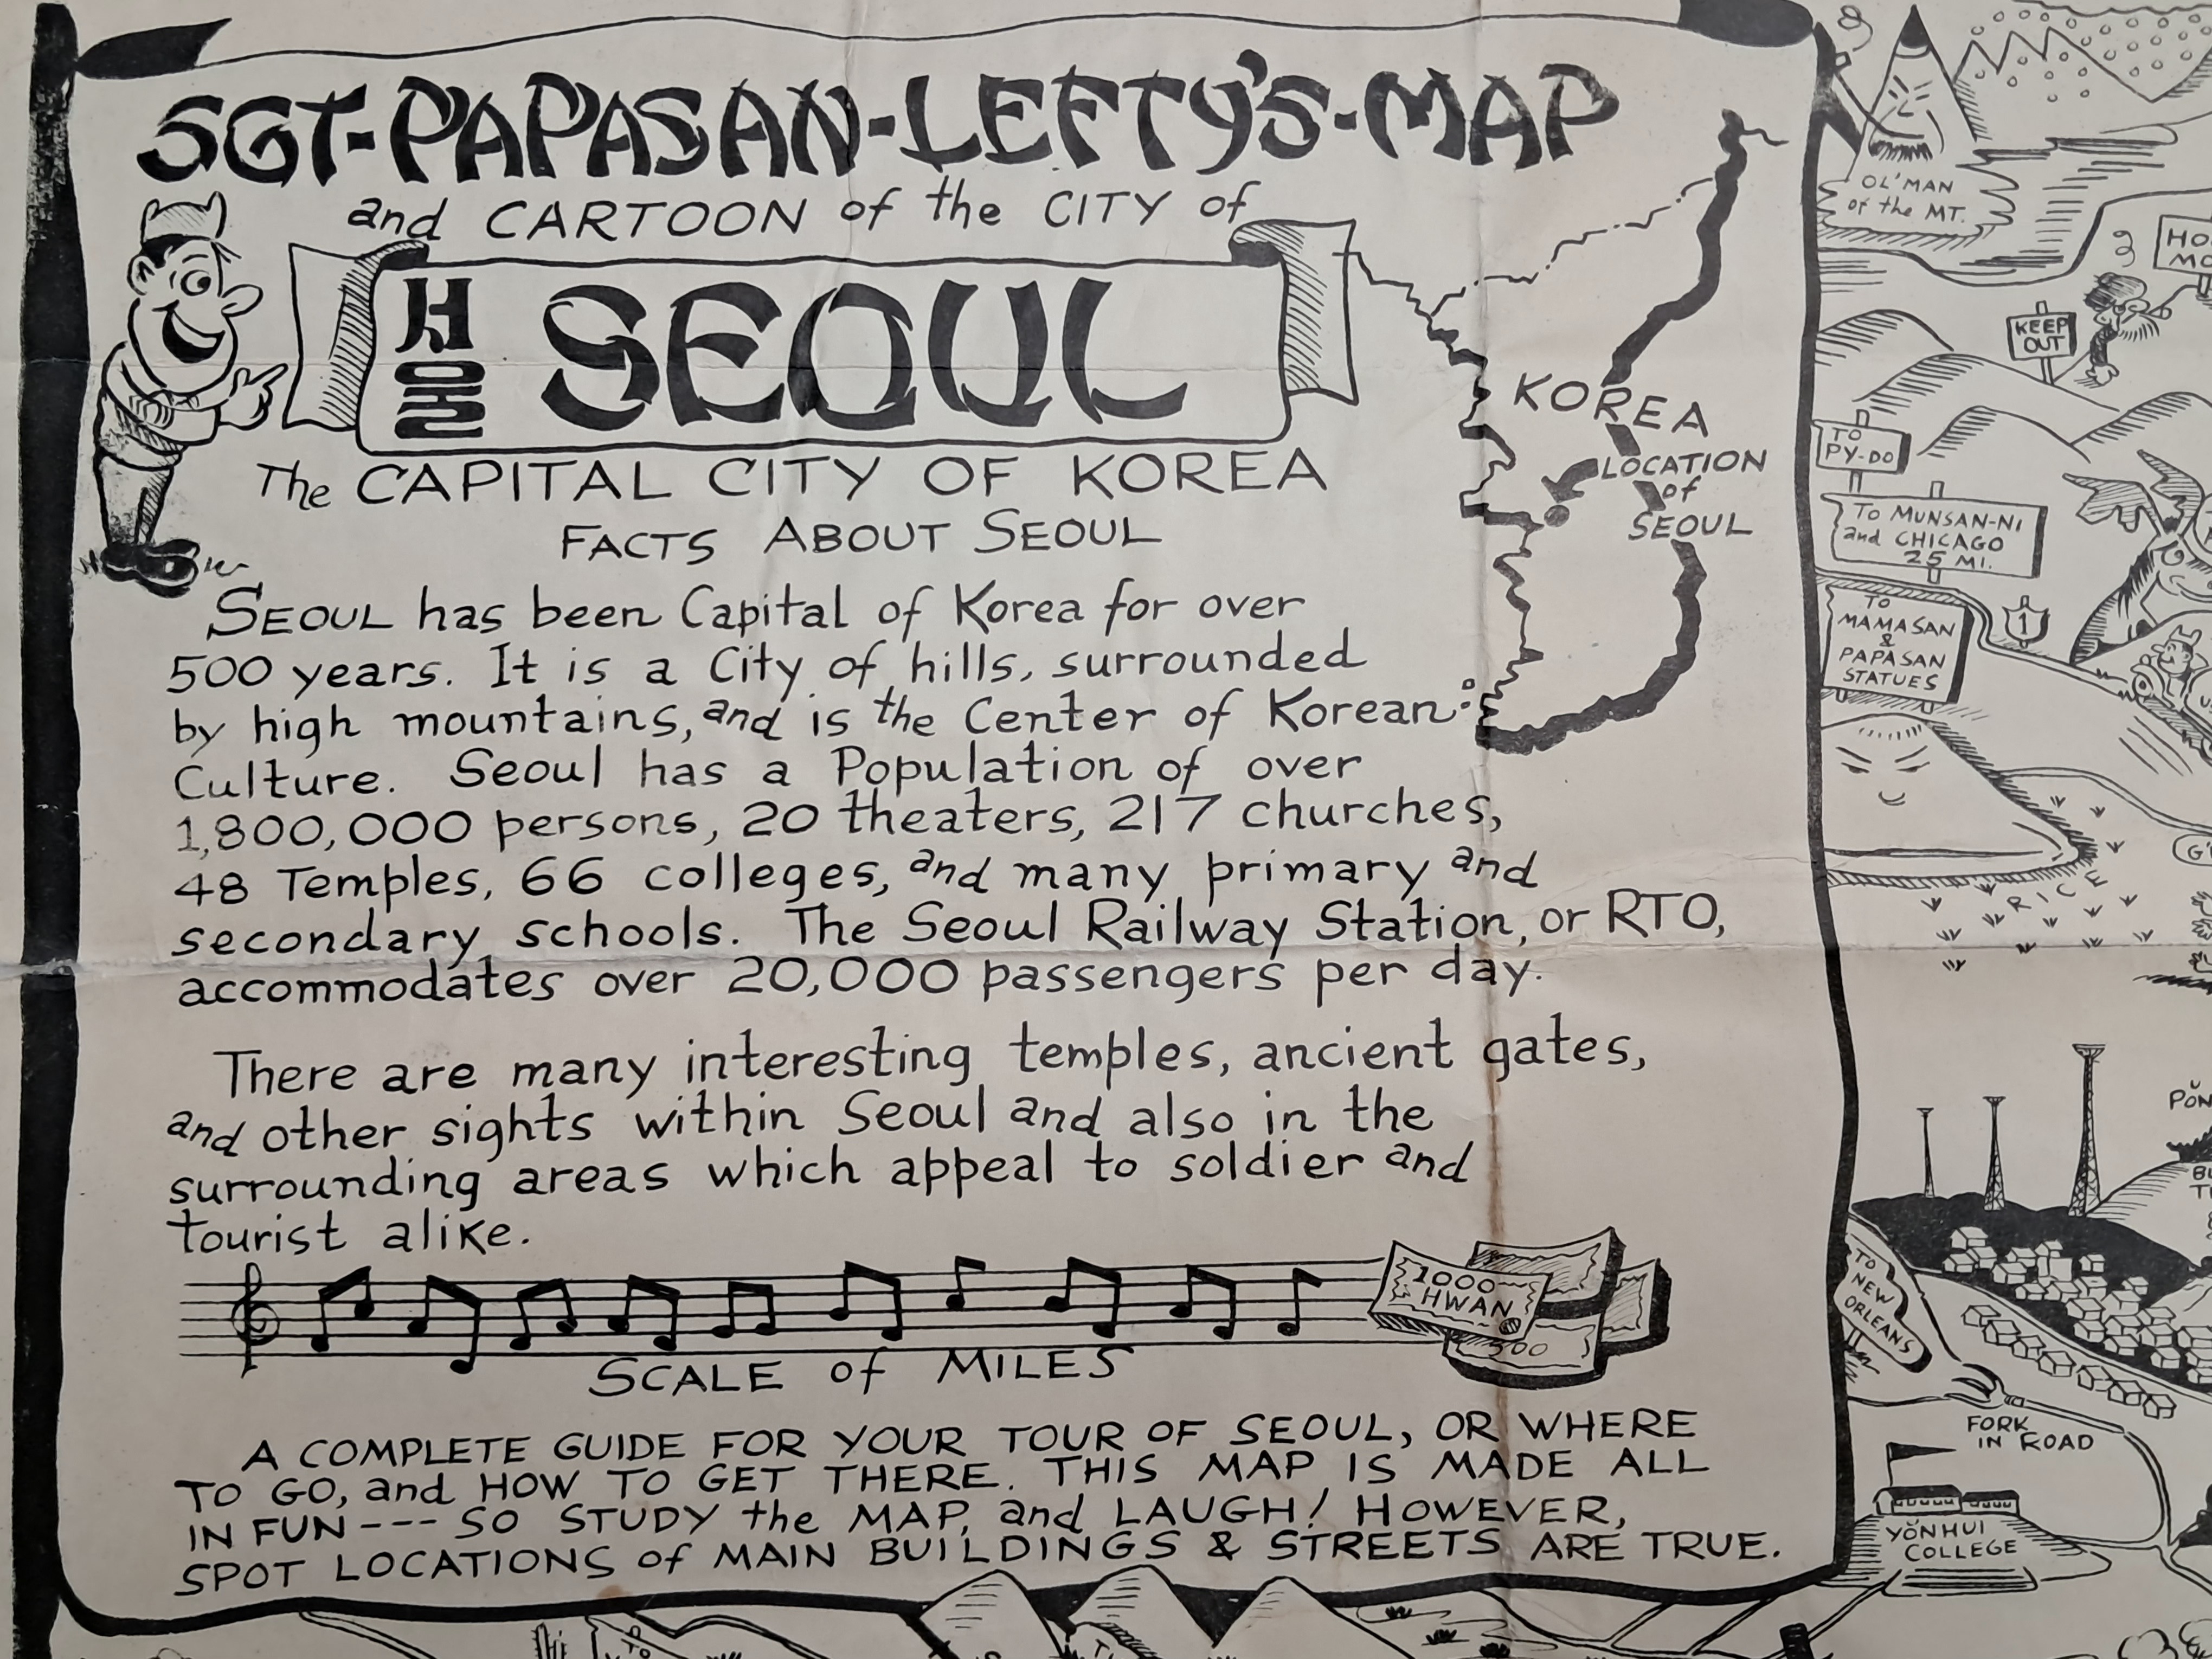 SGT-PAPASAN-LEFTY'S-MAP
and CARTOON of the CITY of
서울 SEOUL
The CAPITAL CITY OF KOREA
FACTS ABOUT SEOUL
SEOUL has been Capital of Korea for over
500 years. It is a City of hills, surrounded
by high mountains, and is the Center of Korean
Culture. Seoul has a Population of over
1,800,000 persons, 20 theaters, 217 churches,
48 Temples, 66 colleges, and many primary and
secondary schools. The Seoul Railway Station, or RTO,
accommodates over 20,000 passengers per day.
There are many interesting temples, ancient gates,
and other sights within Seoul and also in the
surrounding areas which appeal to soldier and
tourist alike.
1000
HWAN
500
SCALE of MILES
A COMPLETE GUIDE FOR YOUR TOUR OF SEOUL, OR WHERE
TO GO, and HOW TO GET THERE. THIS MAP IS MADE ALL
IN FUN --- SO STUDY the MAP, and LAUGH! HOWEVER,
SPOT LOCATIONS of MAIN BUILDINGS & STREETS ARE TRUE.
KOREA
LOCATION
of
SEOUL
OL' MAN
of the MT.
KEEP
OUT
TO
PY-DO
TO MUNSAN-NI
and CHICAGO
25 MI.
TO
MAMASAN
&
PAPASAN
STATUES
1
RICE
TO
NEW
ORLEANS
FORK
IN ROAD
YŎNHUI
COLLEGE